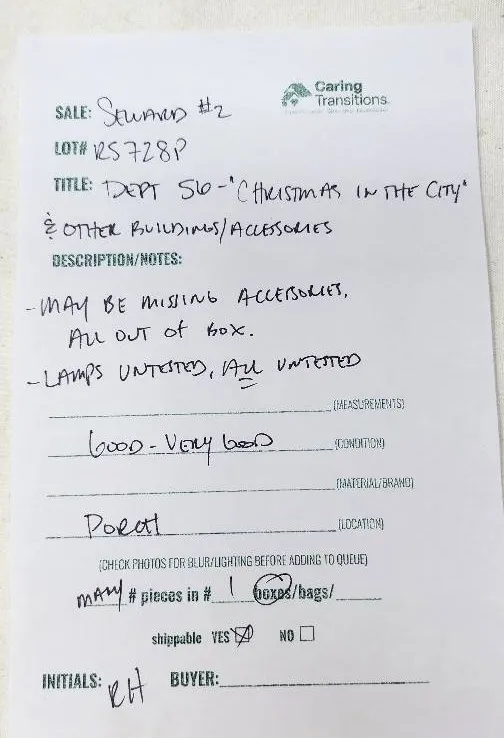 Caring
Transitions
SALE: SEWARD #2
LOT# RS728P
TITLE: DEPT 56 - "CHRISTMAS IN THE CITY"
& OTHER BUILDINGS/ACCESSORIES
DESCRIPTION/NOTES:
- MAY BE MISSING ACCESSORIES,
ALL OUT OF BOX.
- LAMPS UNTESTED, ALL UNTESTED
(MEASUREMENTS)
GOOD - VERY GOOD (CONDITION)
(MATERIAL/BRAND)
PORCH (LOCATION)
(CHECK PHOTOS FOR BLUR/LIGHTING BEFORE ADDING TO QUEUE)
MANY # pieces in # 1 boxes/bags/
shippable YES NO
INITIALS: RH BUYER: